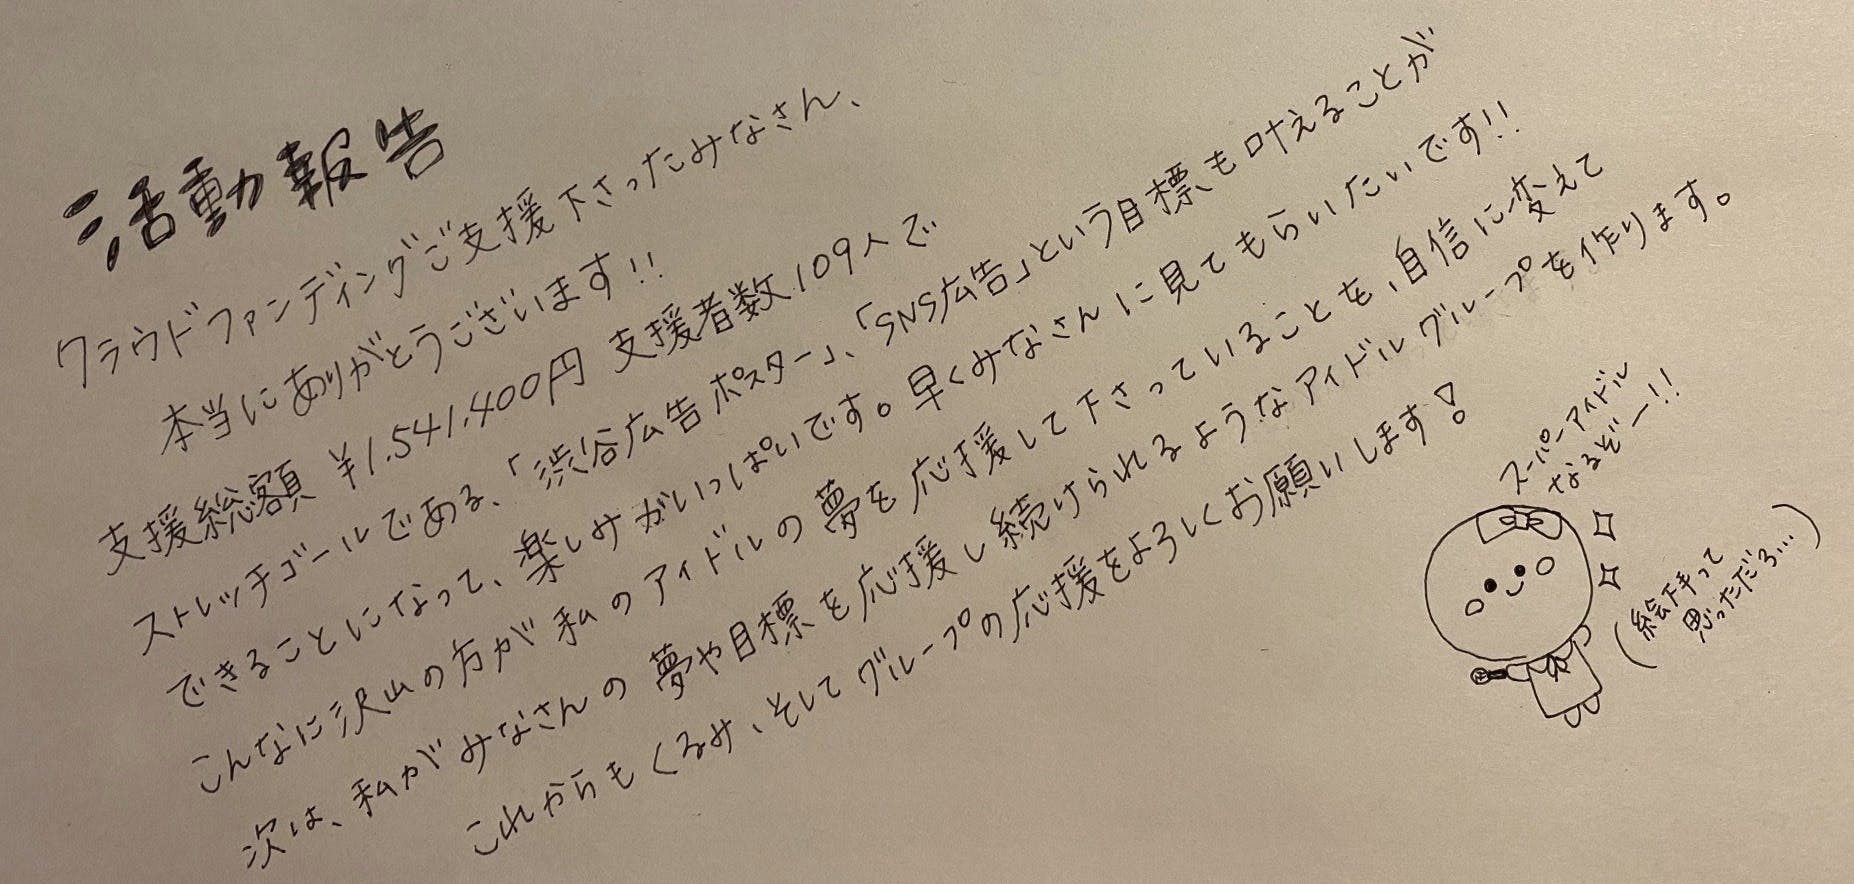 活動報告
クラウドファンディングご支援下さったみなさん、
本当にありがとうございます!!
支援総額 ¥1.541.400円 支援者数109人で
ストレッチゴールである、「渋谷広告ポスター」、「SNS広告」という目標も叶えることが
できることになって、楽しみがいっぱいです。早くみなさんに見てもらいたいです!!
こんなに沢山の方が私のアイドルの夢を応援して下さっていることを、自信に変えて
次は、私がみなさんの夢や目標を応援し続けられるようなアイドルグループを作ります。
これからもくるみ、そしてグループの応援をよろしくお願いします!
スーパーアイドル
なるぞー!!
(絵下手って
思っただろ…)